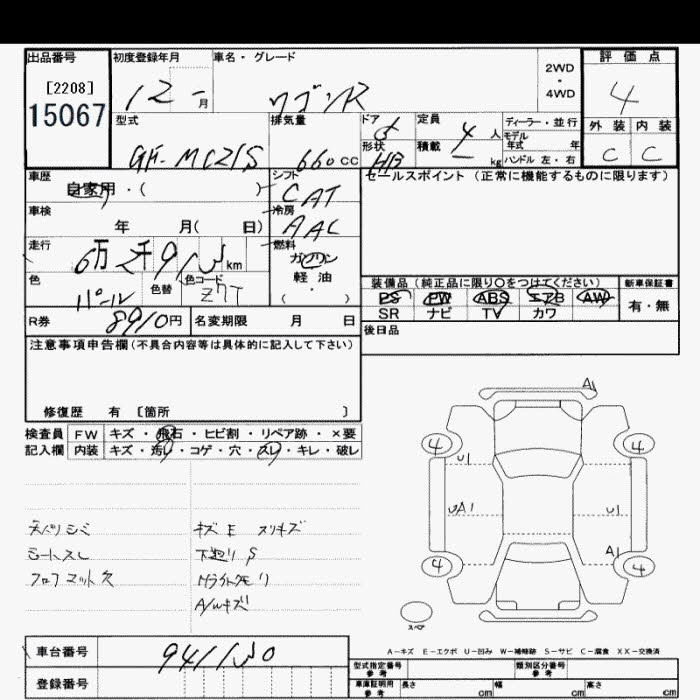 出品番号 初度登録年月 車名・グレード 評価点
[2208] 12 - 月 ワゴンR 2WD・4WD 4
15067 型式 排気量 ドア 定員 ディーラー・並行 外装 内装
GF-MC21S 660 CC 形状 HB 積載 4人 - kg モデル年式 年 ハンドル 左・右 C C
車歴 自家用・( ) シフト CAT セールスポイント (正常に機能するものに限ります)
車検 年 月( 日) 冷房 AAC
走行 6万 千 km 燃料 ガソリン
色 パール 色替 色コード Z7T 軽油 ・ ( ) 装備品(純正品に限り○をつけてください) 新車保証書
PS PW ABS エアB AW 有・無
R券 8910円 名変期限 月 日 SR ナビ TV カワ
注意事項申告欄(不具合内容等は具体的に記入して下さい) 後日品
修復歴 有 [箇所 ]
検査員 FW キズ・飛石・ヒビ割・リペア跡・×要
記入欄 内装 キズ・汚れ・コゲ・穴・スレ・キレ・破レ
A1
4 4
U1
UA1 U1
A1
4 4
スペア
天バリシミ キズE スリキズ
シートスレ 下廻りS
フロアマット欠 Hライトクモリ
A/Wキズ
A-キズ E-エクボ U-凹み W-補修跡 S-サビ C-腐食 XX-交換済
車台番号
登録番号
型式指定番号 参考 類別区分番号 参考
車庫証明用 参考 長さ cm 幅 cm 高さ cm